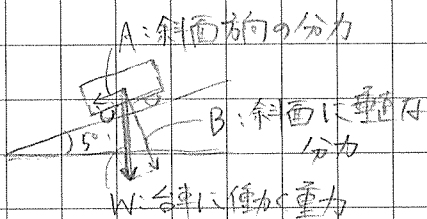 A:斜面方向の分力
15°
B:斜面に垂直な
分力
W:台車に働く重力